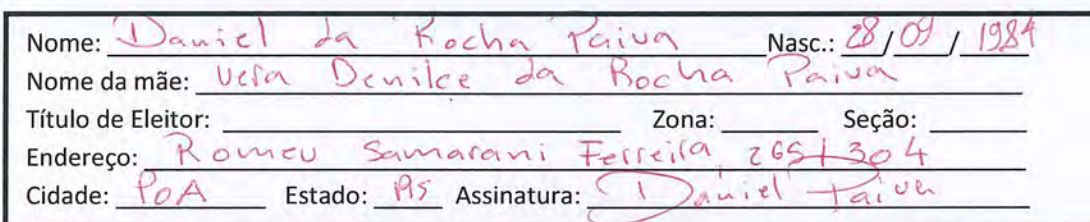 Nome: Daniel da Rocha Paiva Nasc.: 28/09/1984
Nome da mãe: Vera Denilce da Rocha Paiva
Título de Eleitor: Zona: Seção:
Endereço: Romeu Samarani Ferreira, 265/304
Cidade: POA Estado: RS Assinatura: Daniel Paiva